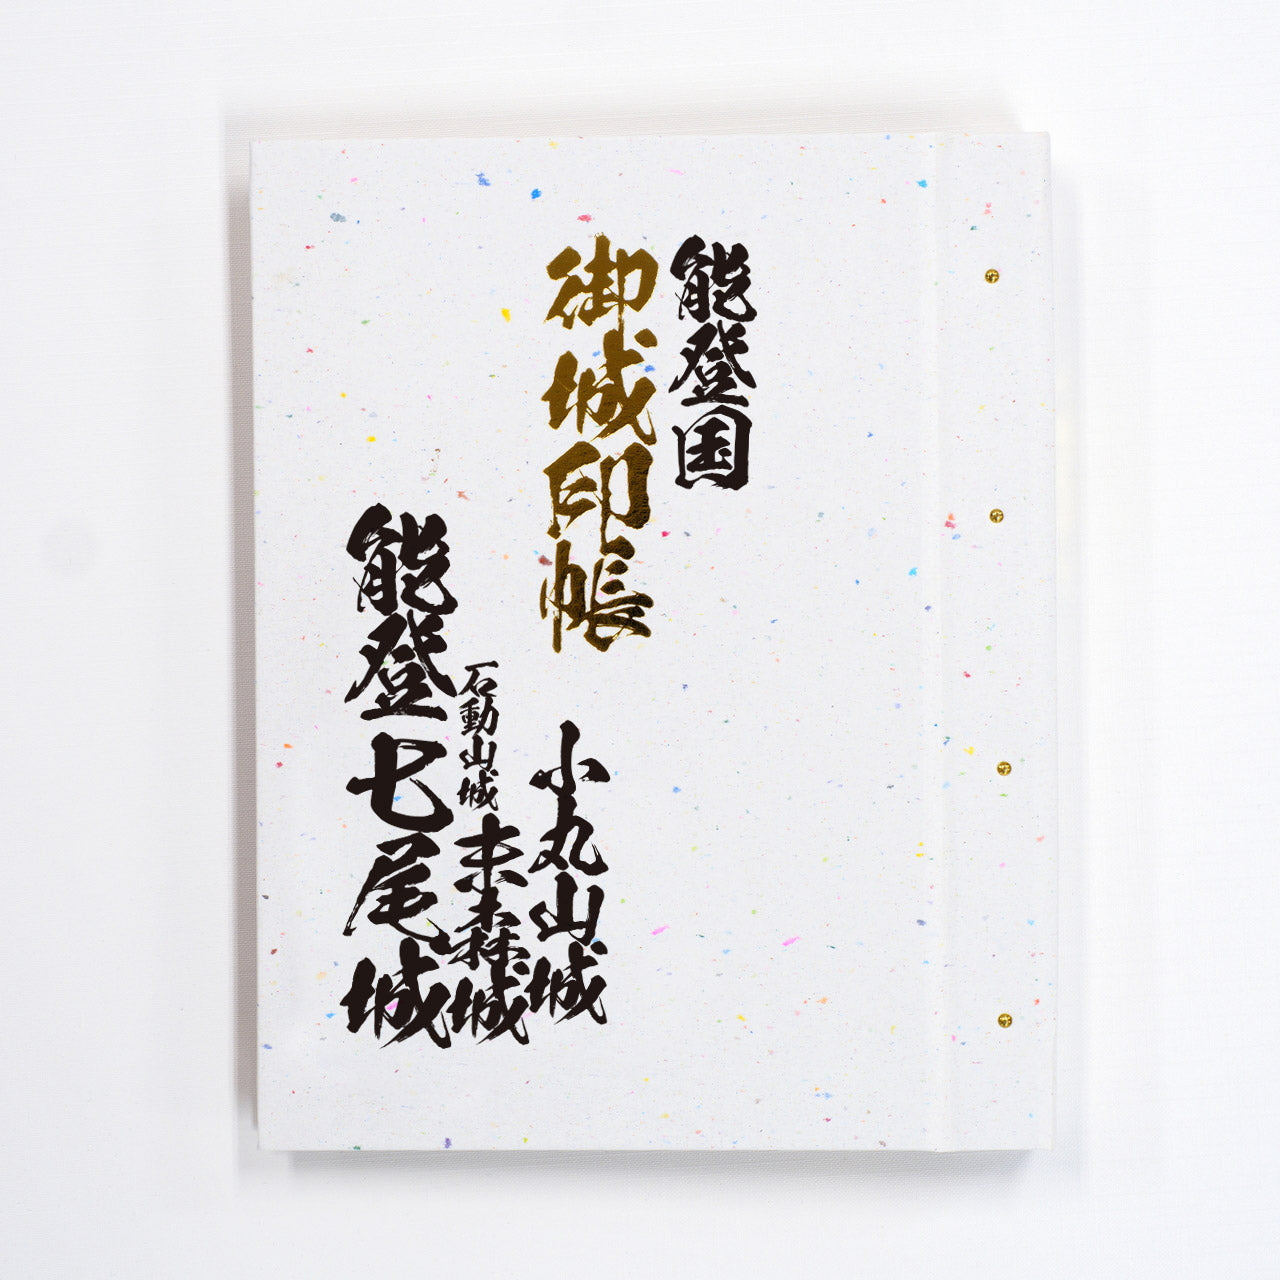 能登国
御城印帳
小丸山城
末森城
石動山城
能登七尾城